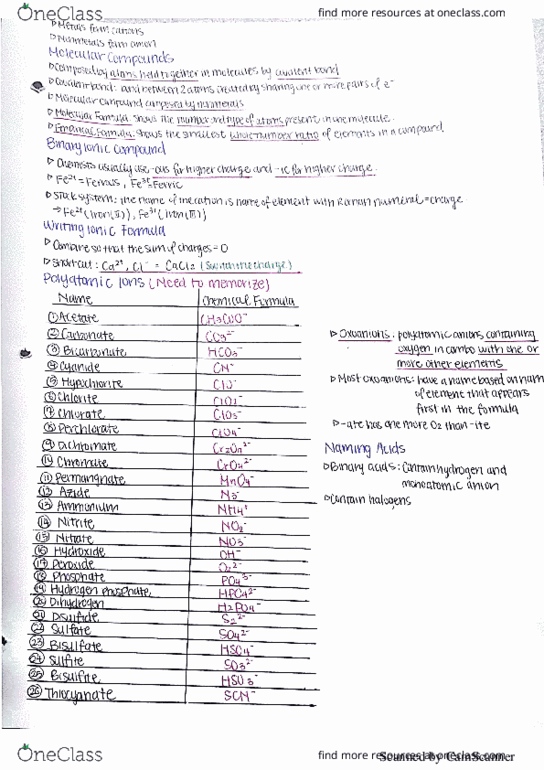 OneClass
find more resources at oneclass.com
▷ Metals form cations
▷ Nonmetals form anion
Molecular Compounds
▷ Composed by atoms held together in molecules by covalent bond
▷ Covalent bond: bond between 2 atoms created by sharing one or more pairs of e⁻
▷ Molecular compound composed by nonmetals
▷ Molecular Formula: shows the number and type of atoms present in one molecule.
▷ Empirical Formula: shows the smallest whole number ratio of elements in a compound
Binary Ionic Compound
▷ Chemists usually use -ous for higher charge and -ic for higher charge.
▷ Fe²⁺ = Ferrous, Fe³⁺ = Ferric
▷ Stock system: the name of the cation is name of element with Roman numeral = charge
→ Fe²⁺ (Iron(II)), Fe³⁺ (Iron(III))
Writing Ionic Formula
▷ Combine so that the sum of charges = 0
▷ Shortcut: Ca²⁺, Cl⁻ = CaCl₂ (Switch the charge)
Polyatomic Ions (Need to memorize)
Name Chemical Formula
① Acetate CH₃COO⁻
② Carbonate CO₃²⁻
③ Bicarbonate HCO₃⁻
④ Cyanide CN⁻
⑤ Hypochlorite ClO⁻
⑥ Chlorite ClO₂⁻
⑦ Chlorate ClO₃⁻
⑧ Perchlorate ClO₄⁻
⑨ Dichromate Cr₂O₇²⁻
⑩ Chromate CrO₄²⁻
⑪ Permangnate MnO₄⁻
⑫ Azide N₃⁻
⑬ Ammonium NH₄⁺
⑭ Nitrite NO₂⁻
⑮ Nitrate NO₃⁻
⑯ Hydroxide OH⁻
⑰ Peroxide O₂²⁻
⑱ Phosphate PO₄³⁻
⑲ Hydrogen phosphate HPO₄²⁻
⑳ Dihydrogen H₂PO₄⁻
㉑ Disulfide S₂²⁻
㉒ Sulfate SO₄²⁻
㉓ Bisulfate HSO₄⁻
㉔ Sulfite SO₃²⁻
㉕ Bisulfite HSO₃⁻
㉖ Thiocyanate SCN⁻
▷ Oxoanions: polyatomic anions containing
oxygen in combo with one or
more other elements
▷ Most oxoanions: have a name based on nam
of element that appears
first in the formula
▷ -ate has one more O₂ than -ite
Naming Acids
▷ Binary acids: Contain hydrogen and
monoatomic anion
▷ Contain halogens
OneClass
find more resources at oneclass.com
Scanned by CamScanner